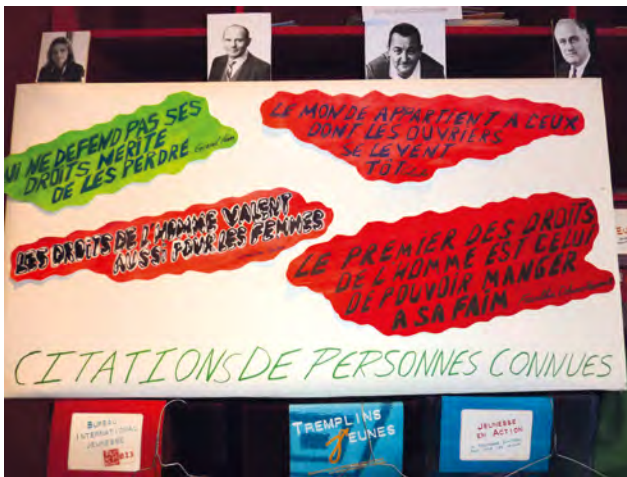 UI NE DEFEND PAS SES
DROITS, MERITE
DE LES PERDRE
LE MONDE APPARTIENT A CEUX
DONT LES OUVRIERS
SE LEVENT
TÔT...
LES DROITS DE L'HOMME VALENT
AUSSI POUR LES FEMMES
LE PREMIER DES DROITS
DE L'HOMME EST CELUI
DE POUVOIR MANGER
A SA FAIM
CITATIONS DE PERSONNES CONNUES
BUREAU
INTERNATIONAL
JEUNESSE
TREMPLINS
JEUNES
JEUNESSE
EN ACTION